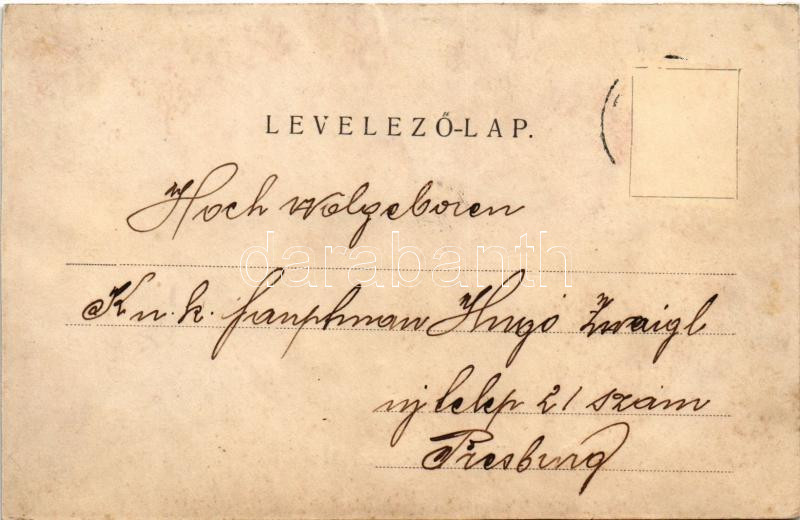 LEVELEZŐ-LAP.
Hoch wolgeboren
darabanth
K u. k. hauptman Hugó Zwaigl
ujtelep 21 szám
Presburg